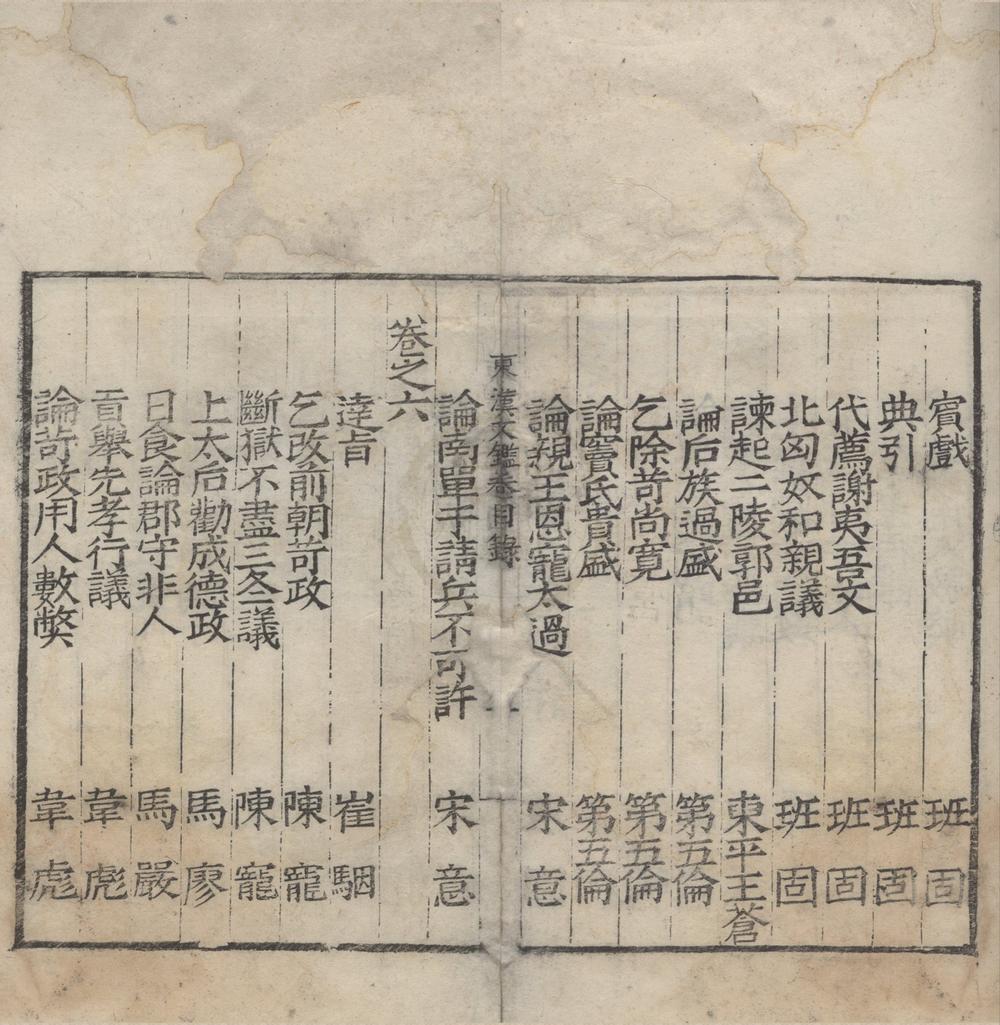 賓戲 班固
典引 班固
代薦謝夷吾文 班固
北匈奴和親議 班固
諫起二陵郭邑 東平王蒼
論后族過盛 第五倫
乞除苛尚寬 第五倫
論竇氏貴盛 第五倫
論親王恩寵太過 宋意
東漢文鑑卷目錄 二
論南單于請兵不可許 宋意
卷之六
達旨 崔駰
乞改前朝苛政 陳寵
斷獄不盡三冬議 陳寵
上太后勸成德政 馬廖
日食論郡守非人 馬嚴
貢舉先孝行議 韋彪
論苛政用人數弊 韋彪